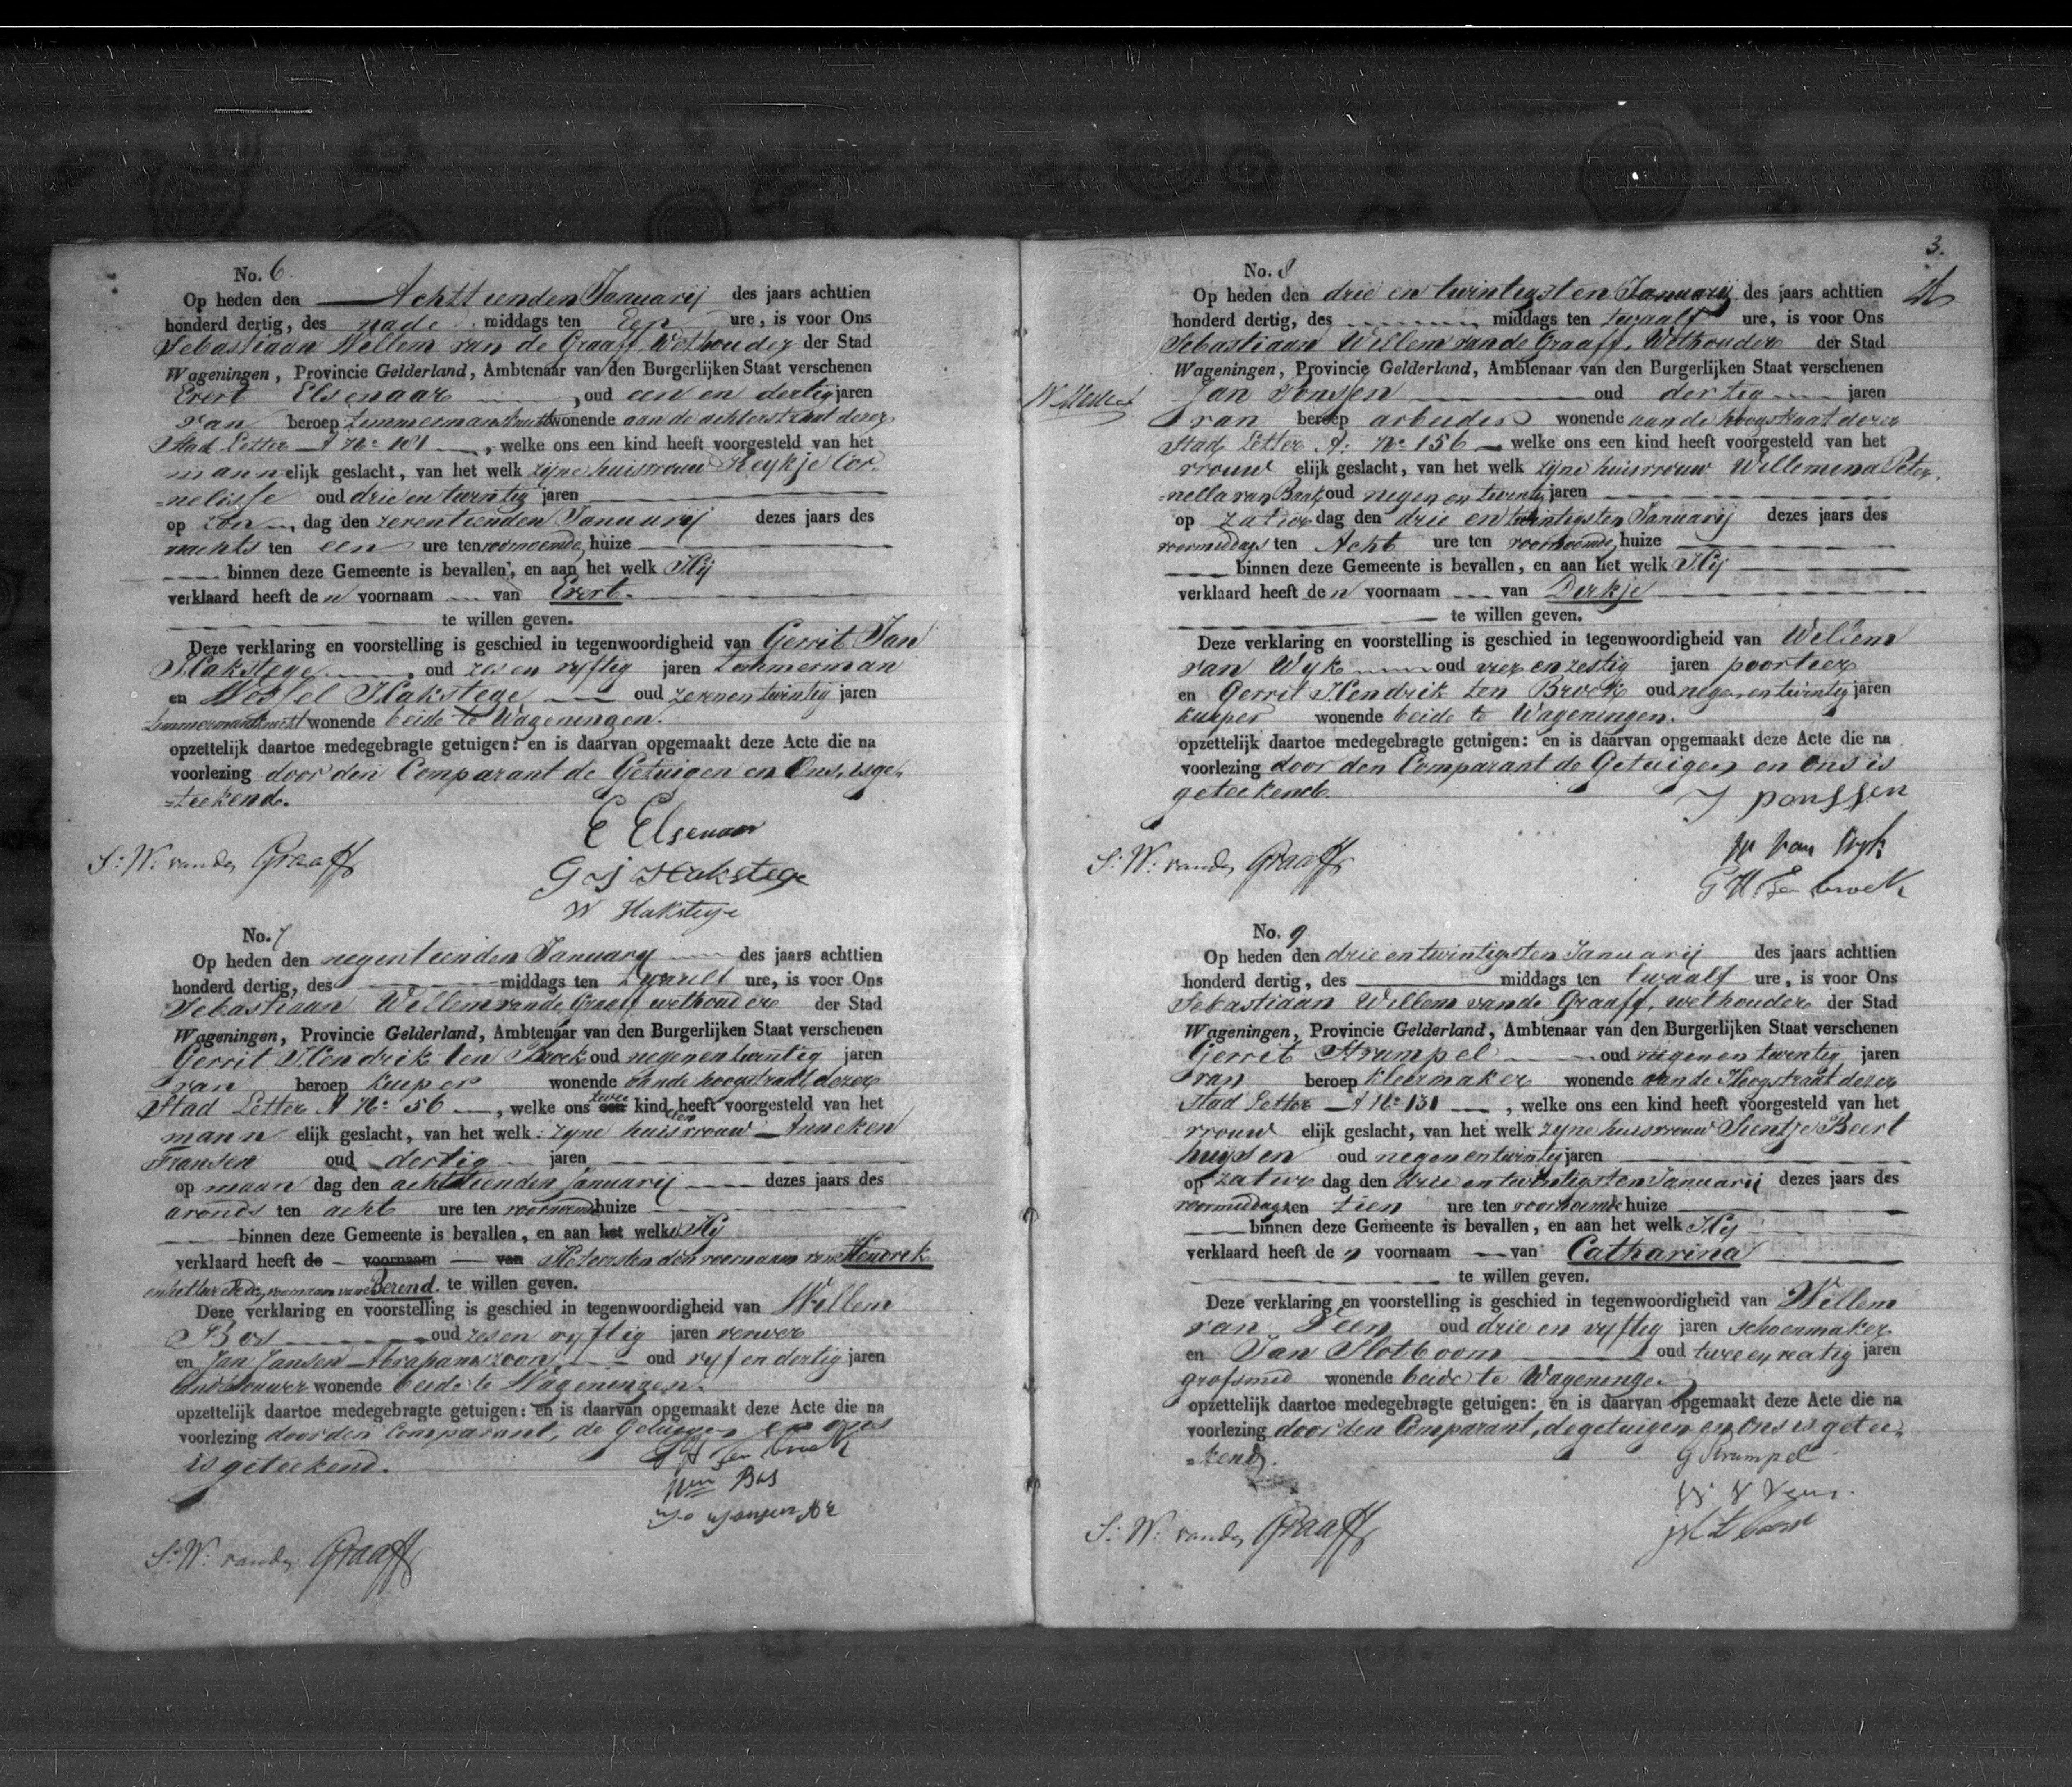 No. 6.
Op heden den Achttienden Januarij des jaars achttien
honderd dertig, des nade middags ten Een ure, is voor Ons
Sebastiaan Willem van de Graaff, Wethouder der Stad
Wageningen, Provincie Gelderland, Ambtenaar van den Burgerlijken Staat verschenen
Evert Elsenaar, oud een en dertig jaren
van beroep timmermansknecht wonende aan de achterstraat dezer
Stad Letter A No 101, welke ons een kind heeft voorgesteld van het
mannelijk geslacht, van het welk zijne huisvrouw Reykje Cor-
=nelisse oud drie en twintig jaren
op zon dag den zeventienden Januarij dezes jaars des
nachts ten een ure ten voornoemde huize
binnen deze Gemeente is bevallen, en aan het welk Hij
verklaard heeft den voornaam van Evert.
te willen geven.
Deze verklaring en voorstelling is geschied in tegenwoordigheid van Gerrit Jan
Hakstege, oud zes en vyftig jaren timmerman
en Wessel Hakstege oud zeven en twintig jaren
timmermansknecht wonende beide te Wageningen.
opzettelijk daartoe medegebragte getuigen: en is daarvan opgemaakt deze Acte die na
voorlezing door den Comparant de Getuigen en Ons, is ge-
=teekend.
E Elsenaar
G J Hakstege
S: W: van de Graaff
W Hakstege
No. 7
Op heden den negentienden January des jaars achttien
honderd dertig, des middags ten twaalf ure, is voor Ons
Sebastiaan Willem van de Graaff wethouder der Stad
Wageningen, Provincie Gelderland, Ambtenaar van den Burgerlijken Staat verschenen
Gerrit Hendrik ten Broek oud negen en twintig jaren
van beroep kuiper wonende aan de hoogstraat dezer
Stad Letter A No 56, welke ons twee een kinderen heeft voorgesteld van het
mannelijk geslacht, van het welk: zyne huisvrouw Anneken
Fransen oud dertig jaren
op maan dag den achttienden Januarij dezes jaars des
avonds ten acht ure ten voornoemde huize
binnen deze Gemeente is bevallen, en aan het welk Hij
verklaard heeft de voornaam van Het eersten den voornaam van Hendrik
en het tweede den voornaam van Berend. te willen geven.
Deze verklaring en voorstelling is geschied in tegenwoordigheid van Willem
Bos oud zes en vyftig jaren verwer
en Jan Jansen Abrahamszoon oud vyf en dertig jaren
landbouwer wonende beide te Wageningen.
opzettelijk daartoe medegebragte getuigen: en is daarvan opgemaakt deze Acte die na
voorlezing door den Comparant, de Getuigen en ons
is geteekend.
G H ten broek
Wm Bos
S: W: van de Graaff
3.
No. 8
Op heden den drie en twintigsten Januarij des jaars achttien
honderd dertig, des middags ten twaalf ure, is voor Ons
Sebastiaan Willem van de Graaff, Wethouder der Stad
Wageningen, Provincie Gelderland, Ambtenaar van den Burgerlijken Staat verschenen
Jan Ponssen oud dertig jaren
van beroep arbeider wonende aan de hoogstraat dezer
Stad Letter A: No 156 welke ons een kind heeft voorgesteld van het
vrouwelijk geslacht, van het welk zijne huisvrouw Willemena Peter-
=nella van Baak, oud negen en twintig jaren
op zatur dag den drie en twintigsten Januarij dezes jaars des
voormiddags ten Acht ure ten voornoemde huize
binnen deze Gemeente is bevallen, en aan het welk Hij
verklaard heeft den voornaam van Derkje
te willen geven.
Deze verklaring en voorstelling is geschied in tegenwoordigheid van Willem
van Wyk oud vier en zestig jaren poortier
en Gerrit Hendrik ten Broek oud negen en twintig jaren
kuiper wonende beide te Wageningen.
opzettelijk daartoe medegebragte getuigen: en is daarvan opgemaakt deze Acte die na
voorlezing door den Comparant de Getuigen en Ons is
geteekend.
J ponssen
W van Wyk
S: W: van de Graaff
G H: ten broek
No. 9
Op heden den drie en twintigsten Januarij des jaars achttien
honderd dertig, des middags ten twaalf ure, is voor Ons
Sebastiaan Willem van de Graaff, wethouder der Stad
Wageningen, Provincie Gelderland, Ambtenaar van den Burgerlijken Staat verschenen
Gerrit Strumpel oud negen en twintig jaren
van beroep kleermaker wonende aan de Hoogstraat dezer
Stad Letter A No 131, welke ons een kind heeft voorgesteld van het
vrouwelijk geslacht, van het welk zyne huisvrouw Sientje Beert
huysen oud negen en twintig jaren
op zatur dag den drie en twintigsten Januarij dezes jaars des
voormiddags ten tien ure ten voornoemde huize
binnen deze Gemeente is bevallen, en aan het welk Hij
verklaard heeft den voornaam van Catharina
te willen geven.
Deze verklaring en voorstelling is geschied in tegenwoordigheid van Willem
van Veen oud drie en vyftig jaren schoenmaker
en Jan Slotboom oud twee en jaren
grofsmid wonende beide te Wageningen
opzettelijk daartoe medegebragte getuigen: en is daarvan opgemaakt deze Acte die na
voorlezing door den Comparant, de getuigen en Ons is getee-
=kend.
G Strumpel
S: W: van de Graaff